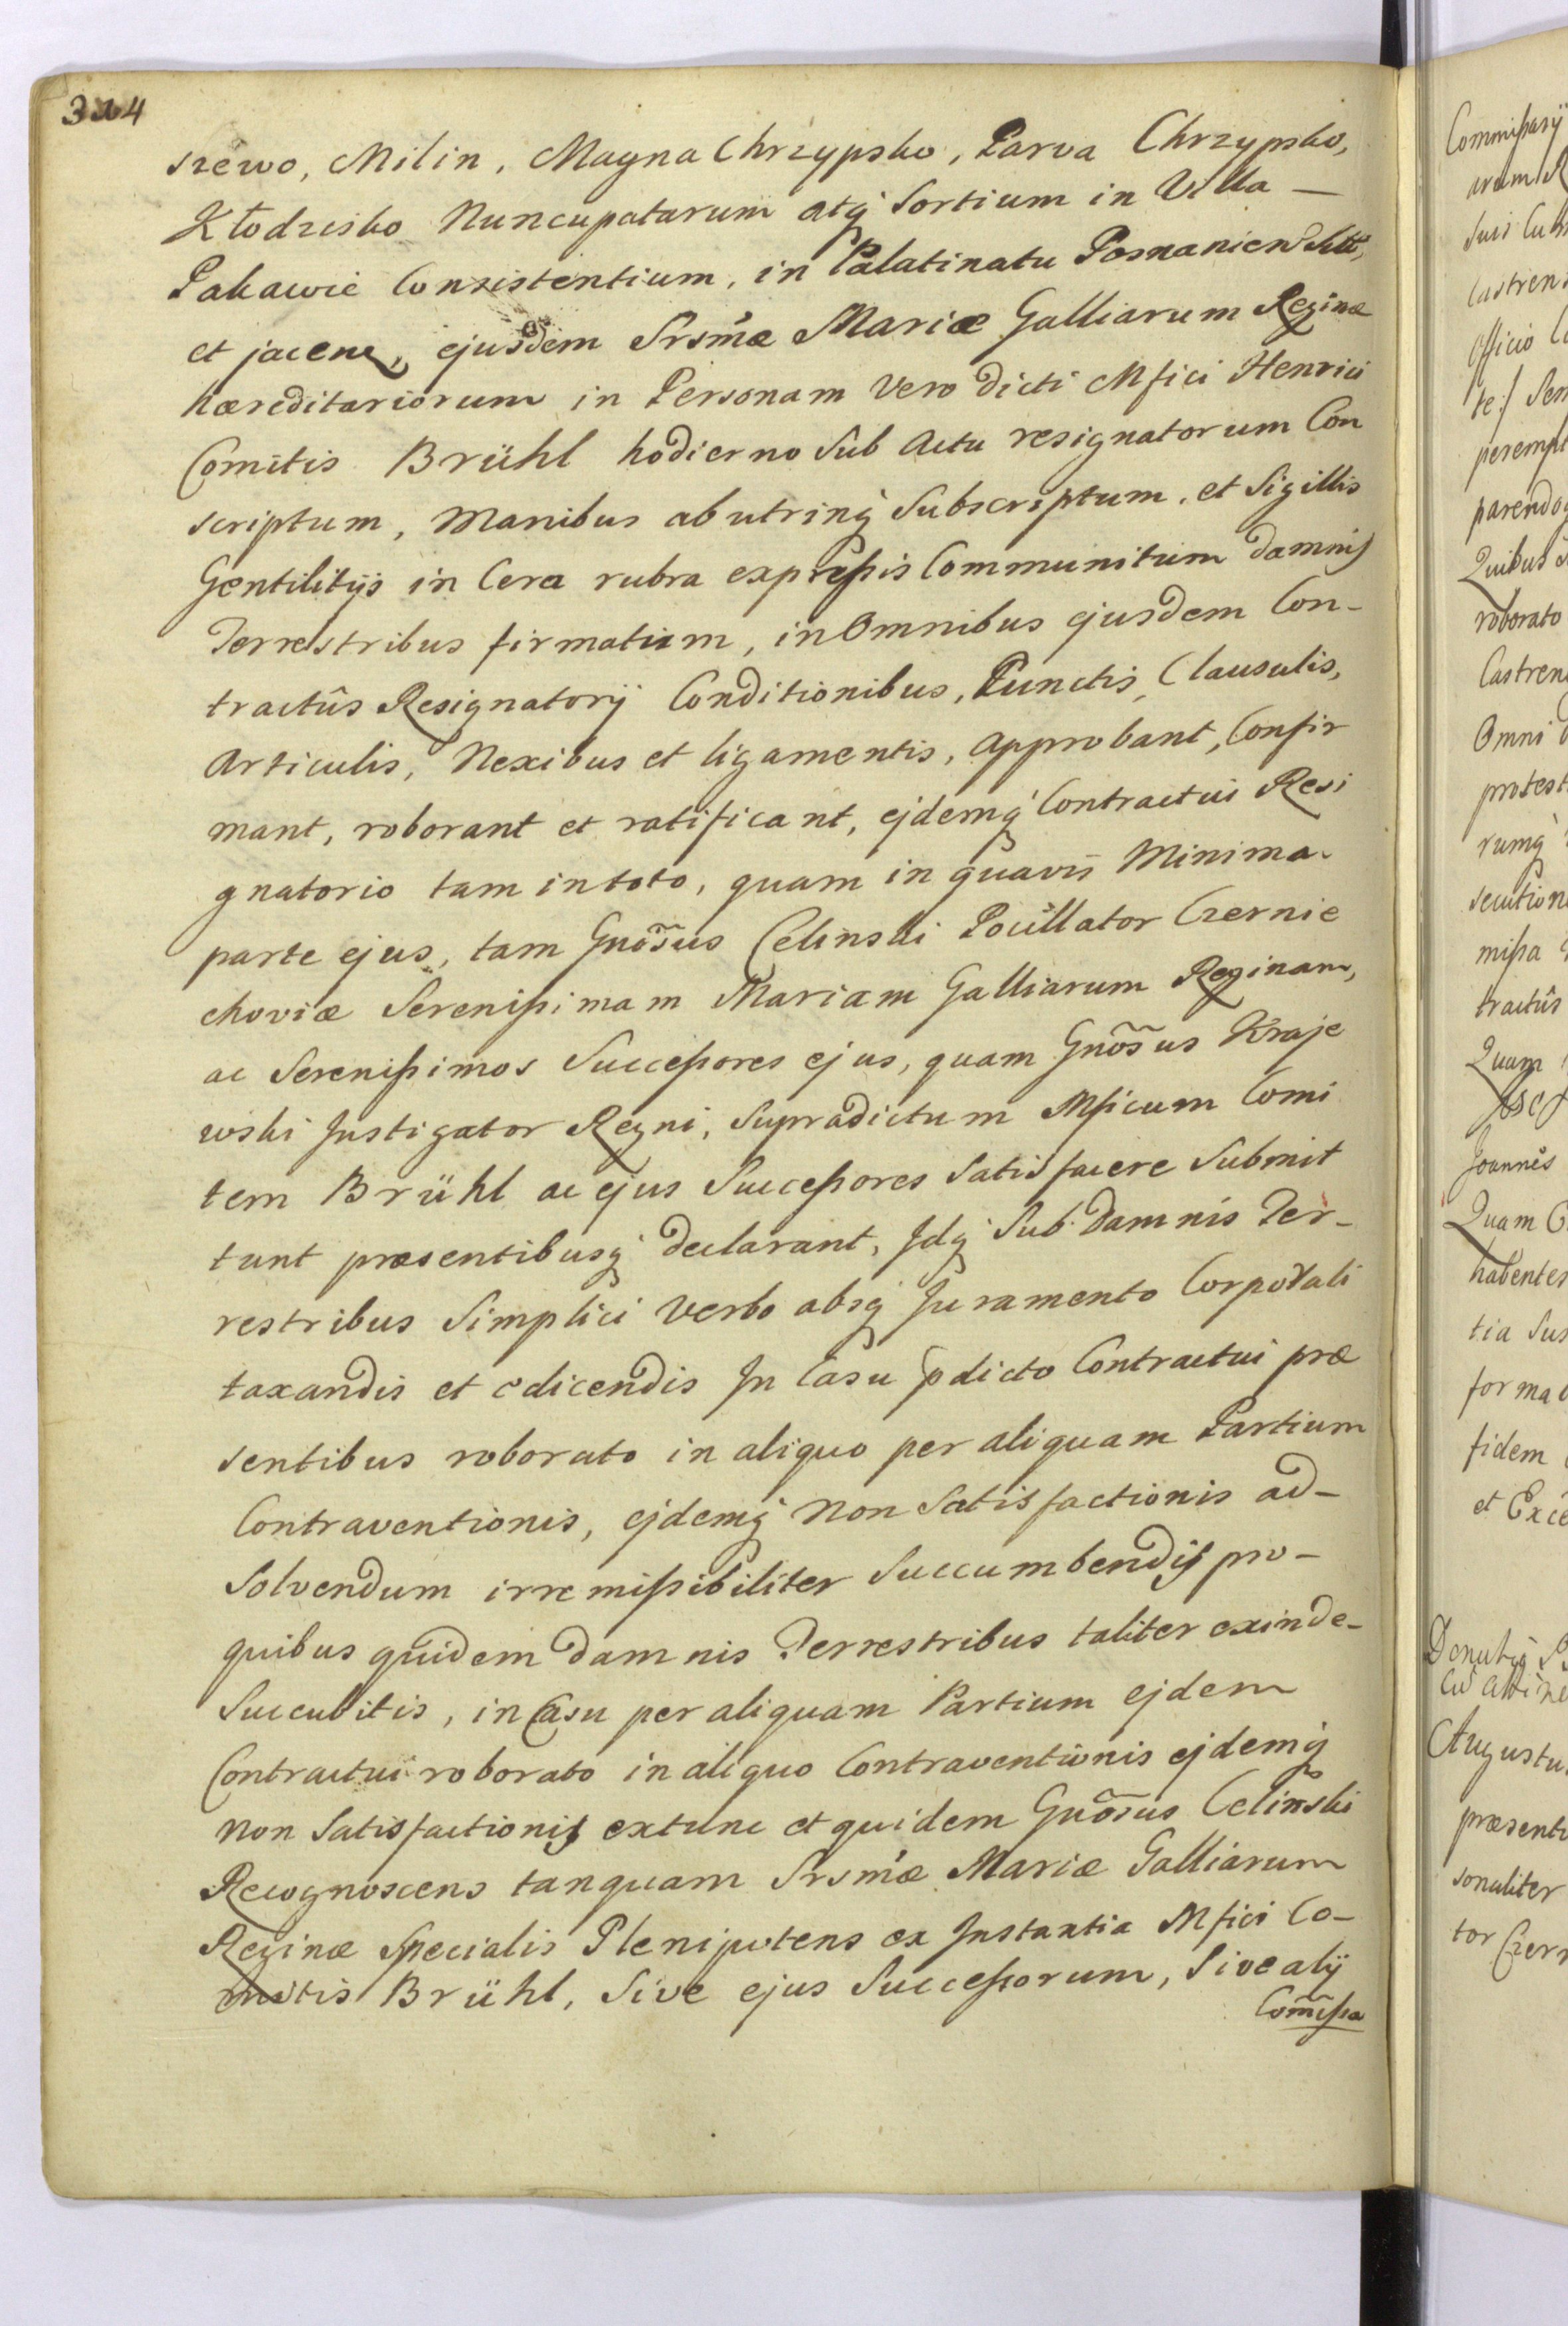 324
szewo, Milin, Magna Chrzypsko, Parva Chrzypsko,
Kłodzisko Nuncupatarum atq́ Sortium in Villa —
Pakawie Consistentium, in Palatinatu Posnanien
et jacen, ejusdem Srsmæ Mariæ Galliarum Reginæ
hæreditariorum in Personam vero dicti Mfici Henrici
Comitis Brühl hodierno Sub Actu resignatorum Con
scriptum, Manibus ab utrinq́ Subscriptum, et Sigillis
Gentilitijs in Cera rubra expreßis Communitum damnis
Terrestribus firmatum, in Omnibus ejusdem Con-
tractûs Resignatorij Conditionibus, Punctis, Clausulis,
Articulis, Nexibus et ligamentis, approbant, Confir
mant, roborant et ratificant, ejdemq́ Contractui Resi
gnatorio tam in toto, quam in quavis Minima
parte ejus, tam Gnõsus Celinski Pocillator Czernie
choviæ Serenißimam Mariam Galliarum Reginam,
ac Serenißimos Succeßores ejus, quam Gnõsus Kraje
wski Instigator Regni, Supradictum Mficum Comi
tem Brühl ac ejus Succeßores Satisfacere Submit
tunt præsentibusq́ declarant, Idq́ Sub damnis Ter-
restribus Simplici Verbo absq́ Juramento Corporali
taxandis et edicendis In Casu pdicto Contractui præ
sentibus roborato in aliquo per aliquam Partium
Contraventionis, ejdemq́ Non Satisfactionis ad-
Solvendum irremißibiliter Succumbendis pro-
quibus quidem damnis Terrestribus taliter exinde-
Succubitis, in Casu per aliquam Partium ejdem
Contractui roborato in aliquo Contraventionis ejdemq́
non Satisfactionis extunc et quidem Gnõsus Celinski
Recognoscens tanquam Srsmæ Mariæ Galliarum
Reginæ Specialis Plenipotens ex Instantia Mfici Co-
mitis Brühl, Sive ejus Succeßorum, Sive alij
Com̃ißa
Commißarij
Suis
Castren
Officio
te:/
perempt
parendo
Quibus
roborato
Castren
Omni
protest
rumq́
secution
mißa
tractûs
Quam
Joannes
Quam
habentes
tia Sus
forma
fidem
et Exce
Augustu
præsenti
sonaliter
tor Czer